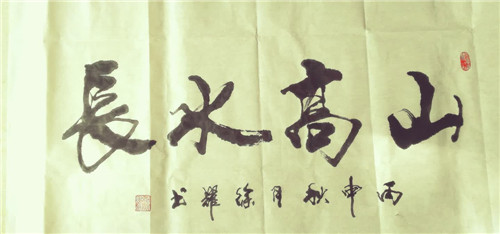 山高水長
丙申秋月徐耀书